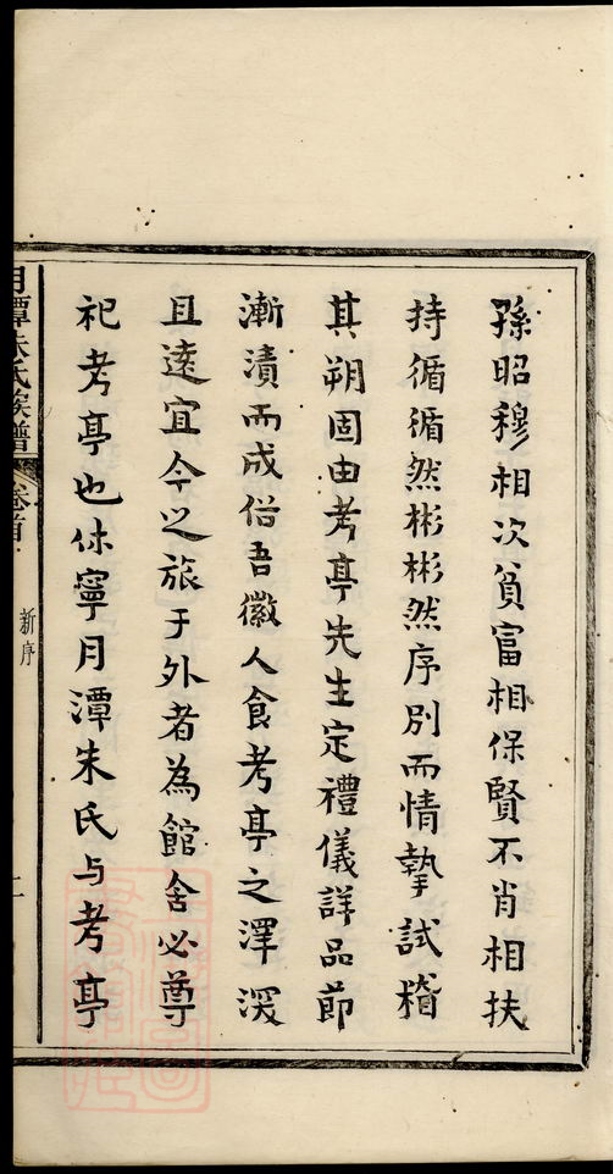 孫昭穆相次貧富相保賢不肖相扶
持循循然彬彬然序別而情摯試稽
其朔固由考亭先生定禮儀詳品節
漸漬而成俗吾徽人食考亭之澤深
且遠宜今之旅于外者為館舍必尊
祀考亭也休寧月潭朱氏与考亭
月潭朱氏族譜 卷首 新序 二